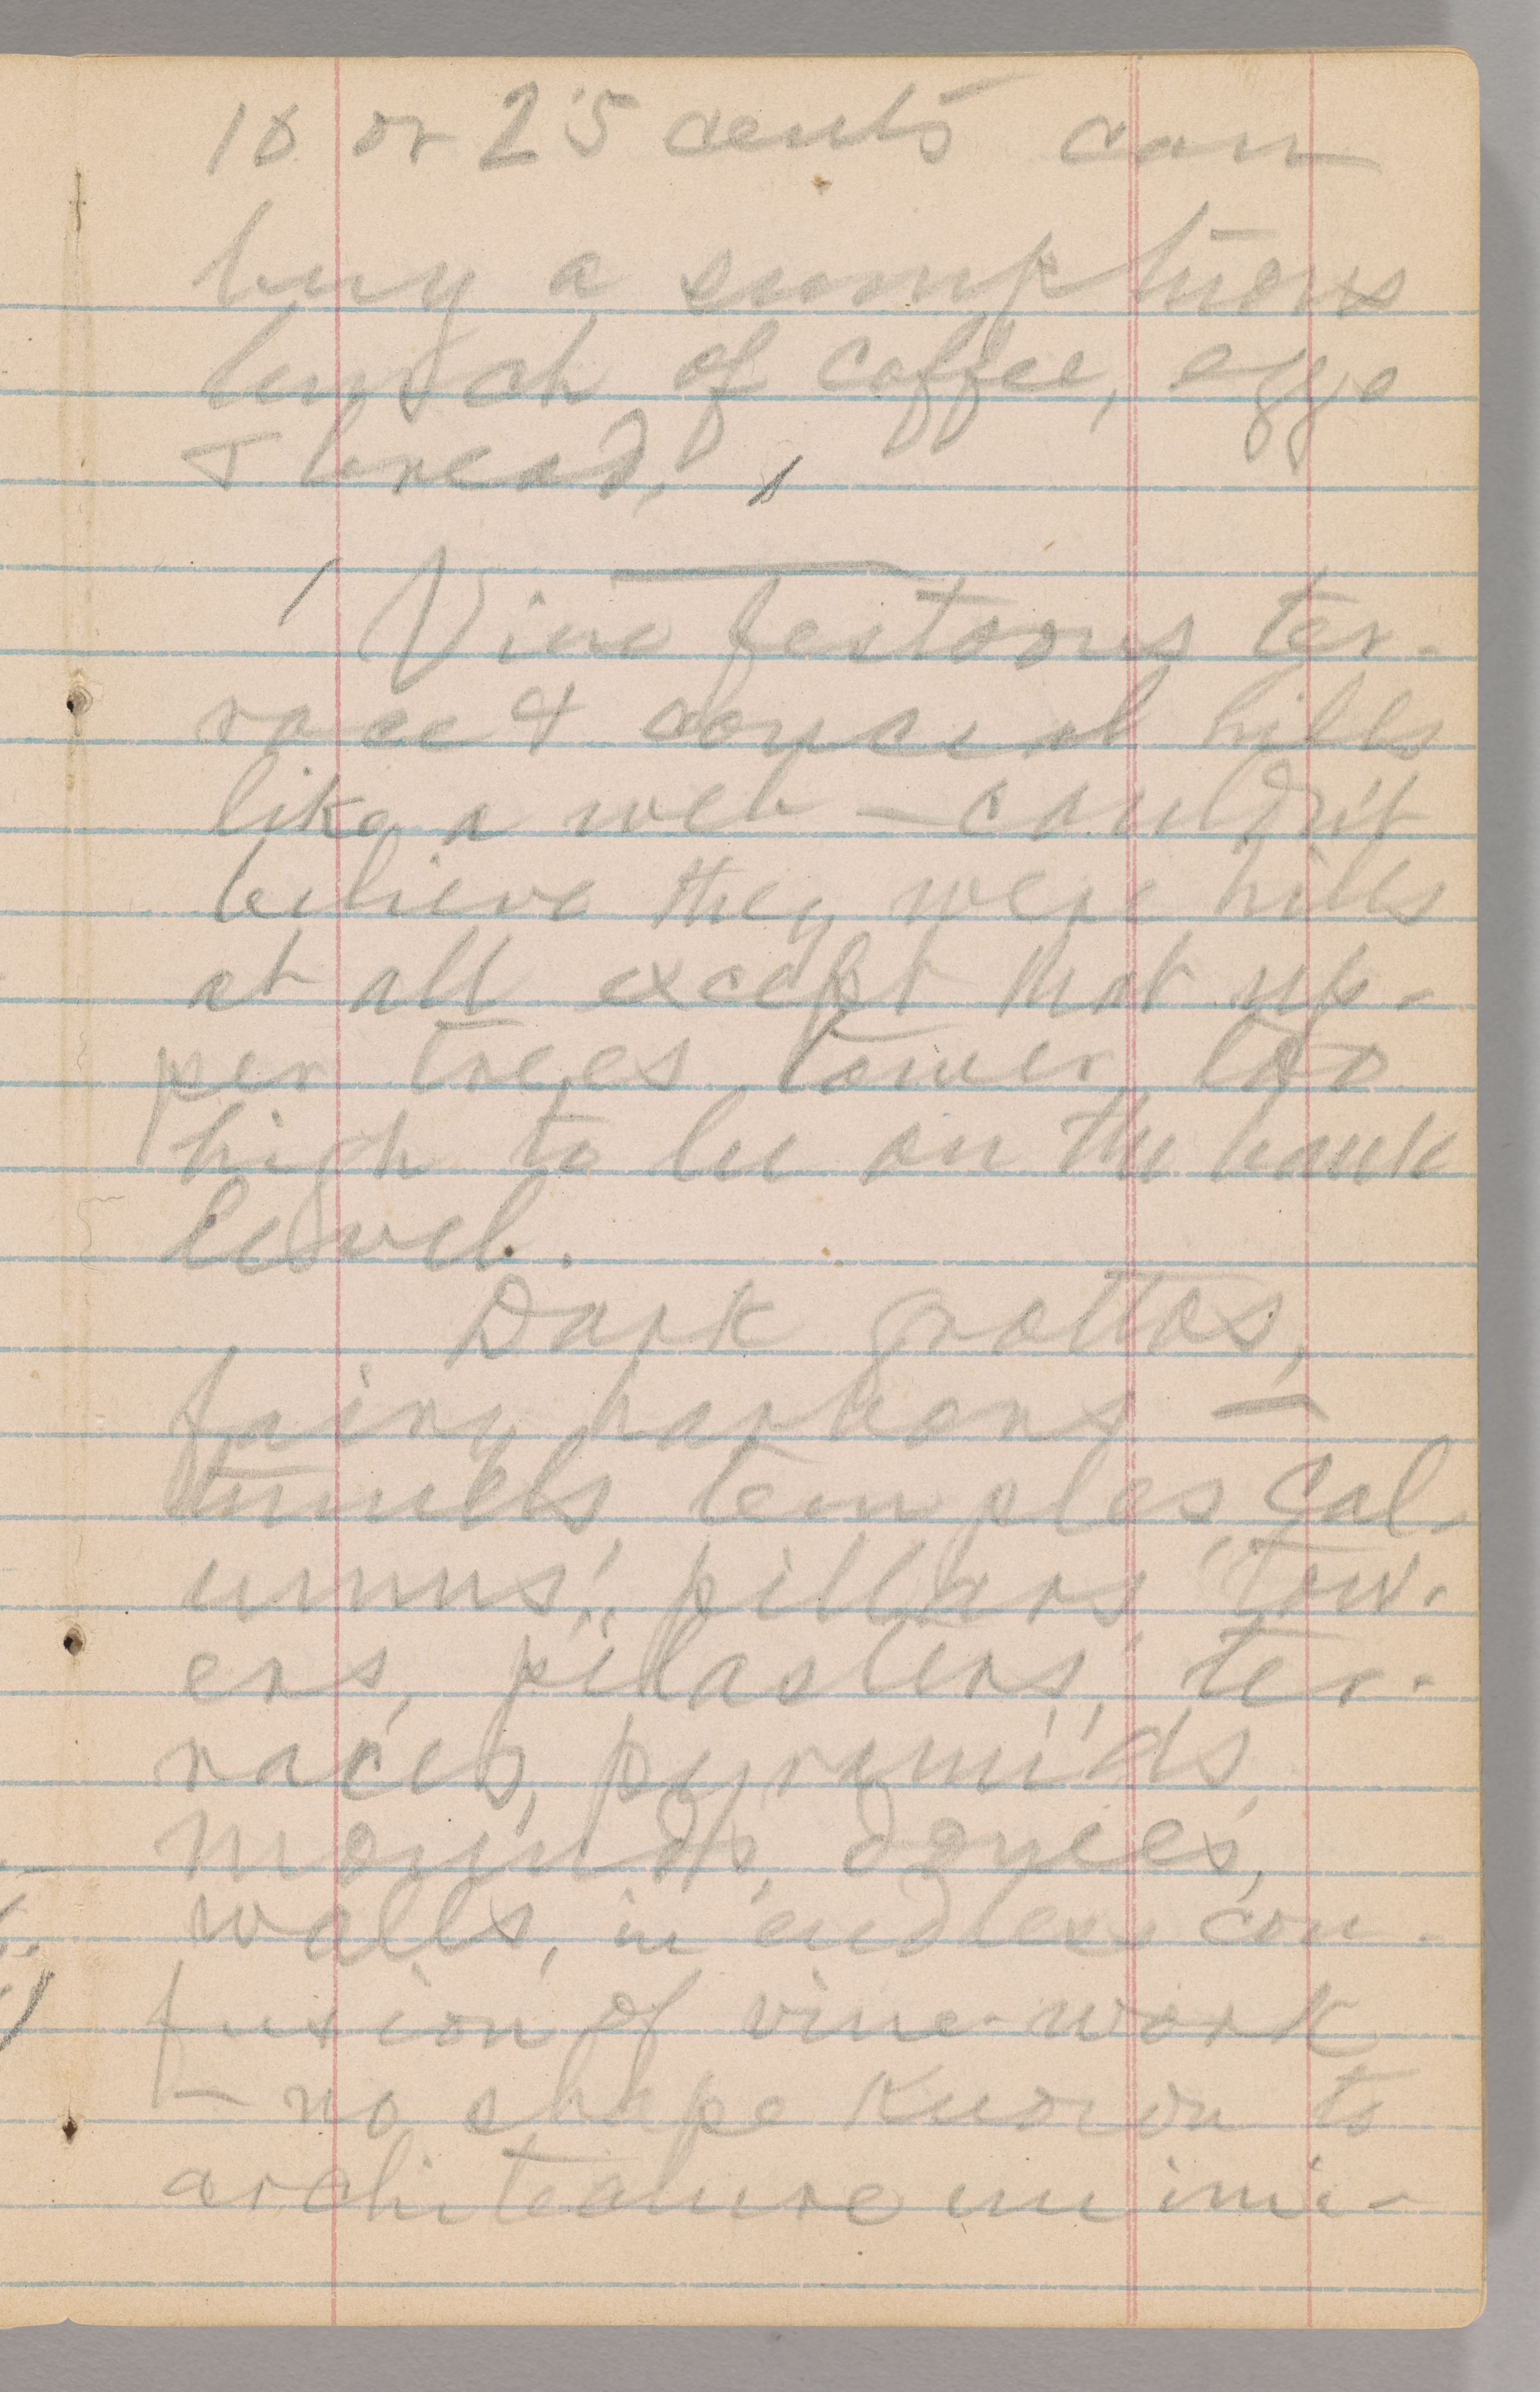 10 or 25 cents can
buy a sumptuous
lunch of coffee, eggs
& bread.
Vine festoons ter-
race & conceal hills
like a web — couldn't
believe they were hills
at all except that up-
per trees tower too
high to be on the bank
level.
Dark grottos,
fairy harbors —
tunnels, temples, col-
umns, pillars, tow-
ers, pilasters, ter-
races, pyramids,
mounds, domes,
walls, in endless con-
fusion of vine-work
— no shape known to
architecture unimi-